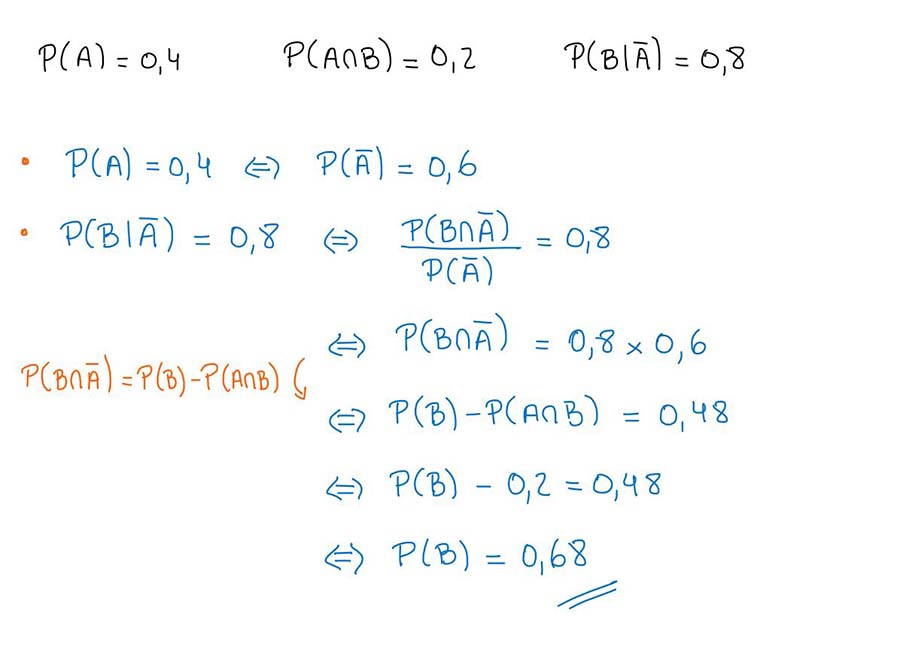 P(A) = 0,4 P(A∩B) = 0,2 P(B|Ā) = 0,8
• P(A) = 0,4 ⇔ P(Ā) = 0,6
• P(B|Ā) = 0,8 ⇔ P(B∩Ā)/P(Ā) = 0,8
⇔ P(B∩Ā) = 0,8 × 0,6
P(B∩Ā) = P(B) - P(A∩B)
⇔ P(B) - P(A∩B) = 0,48
⇔ P(B) - 0,2 = 0,48
⇔ P(B) = 0,68